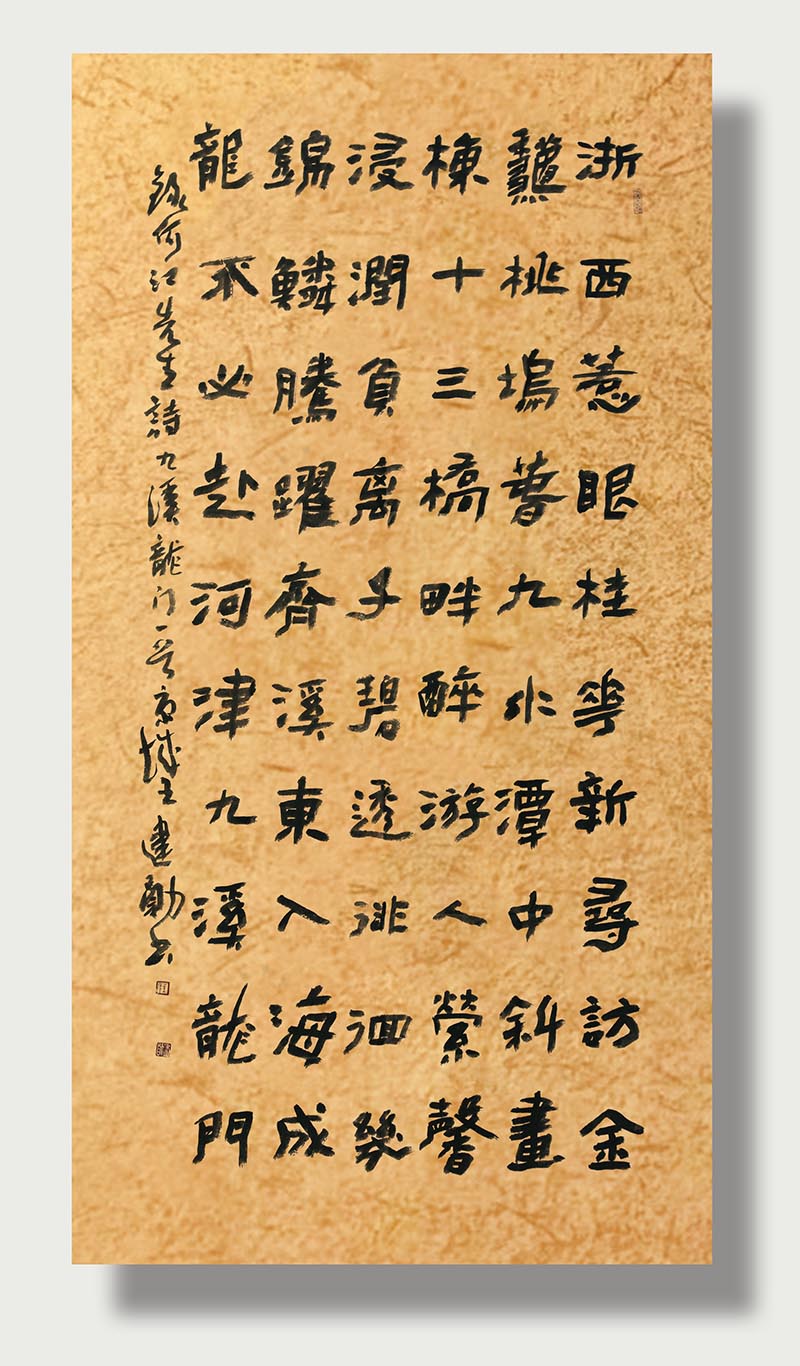 浙西惹眼桂華新尋訪金
龝桃塢暮九水潭中斜畫
棟十三橋畔醉游人縈馨
浸潤負离子碧透徘徊幾
錦鱗騰躍齊溪東入海成
龍不必赴河津九溪龍門
錄何江先生詩九溪龍门一首京城王建勛书